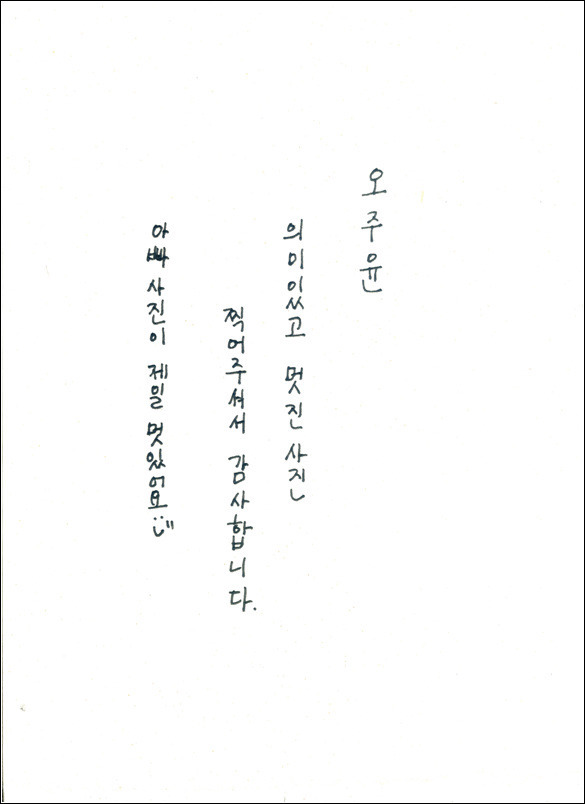 오주윤
의미있고 멋진 사진
찍어주셔서 감사합니다.
아빠 사진이 제일 멋있어요:)"